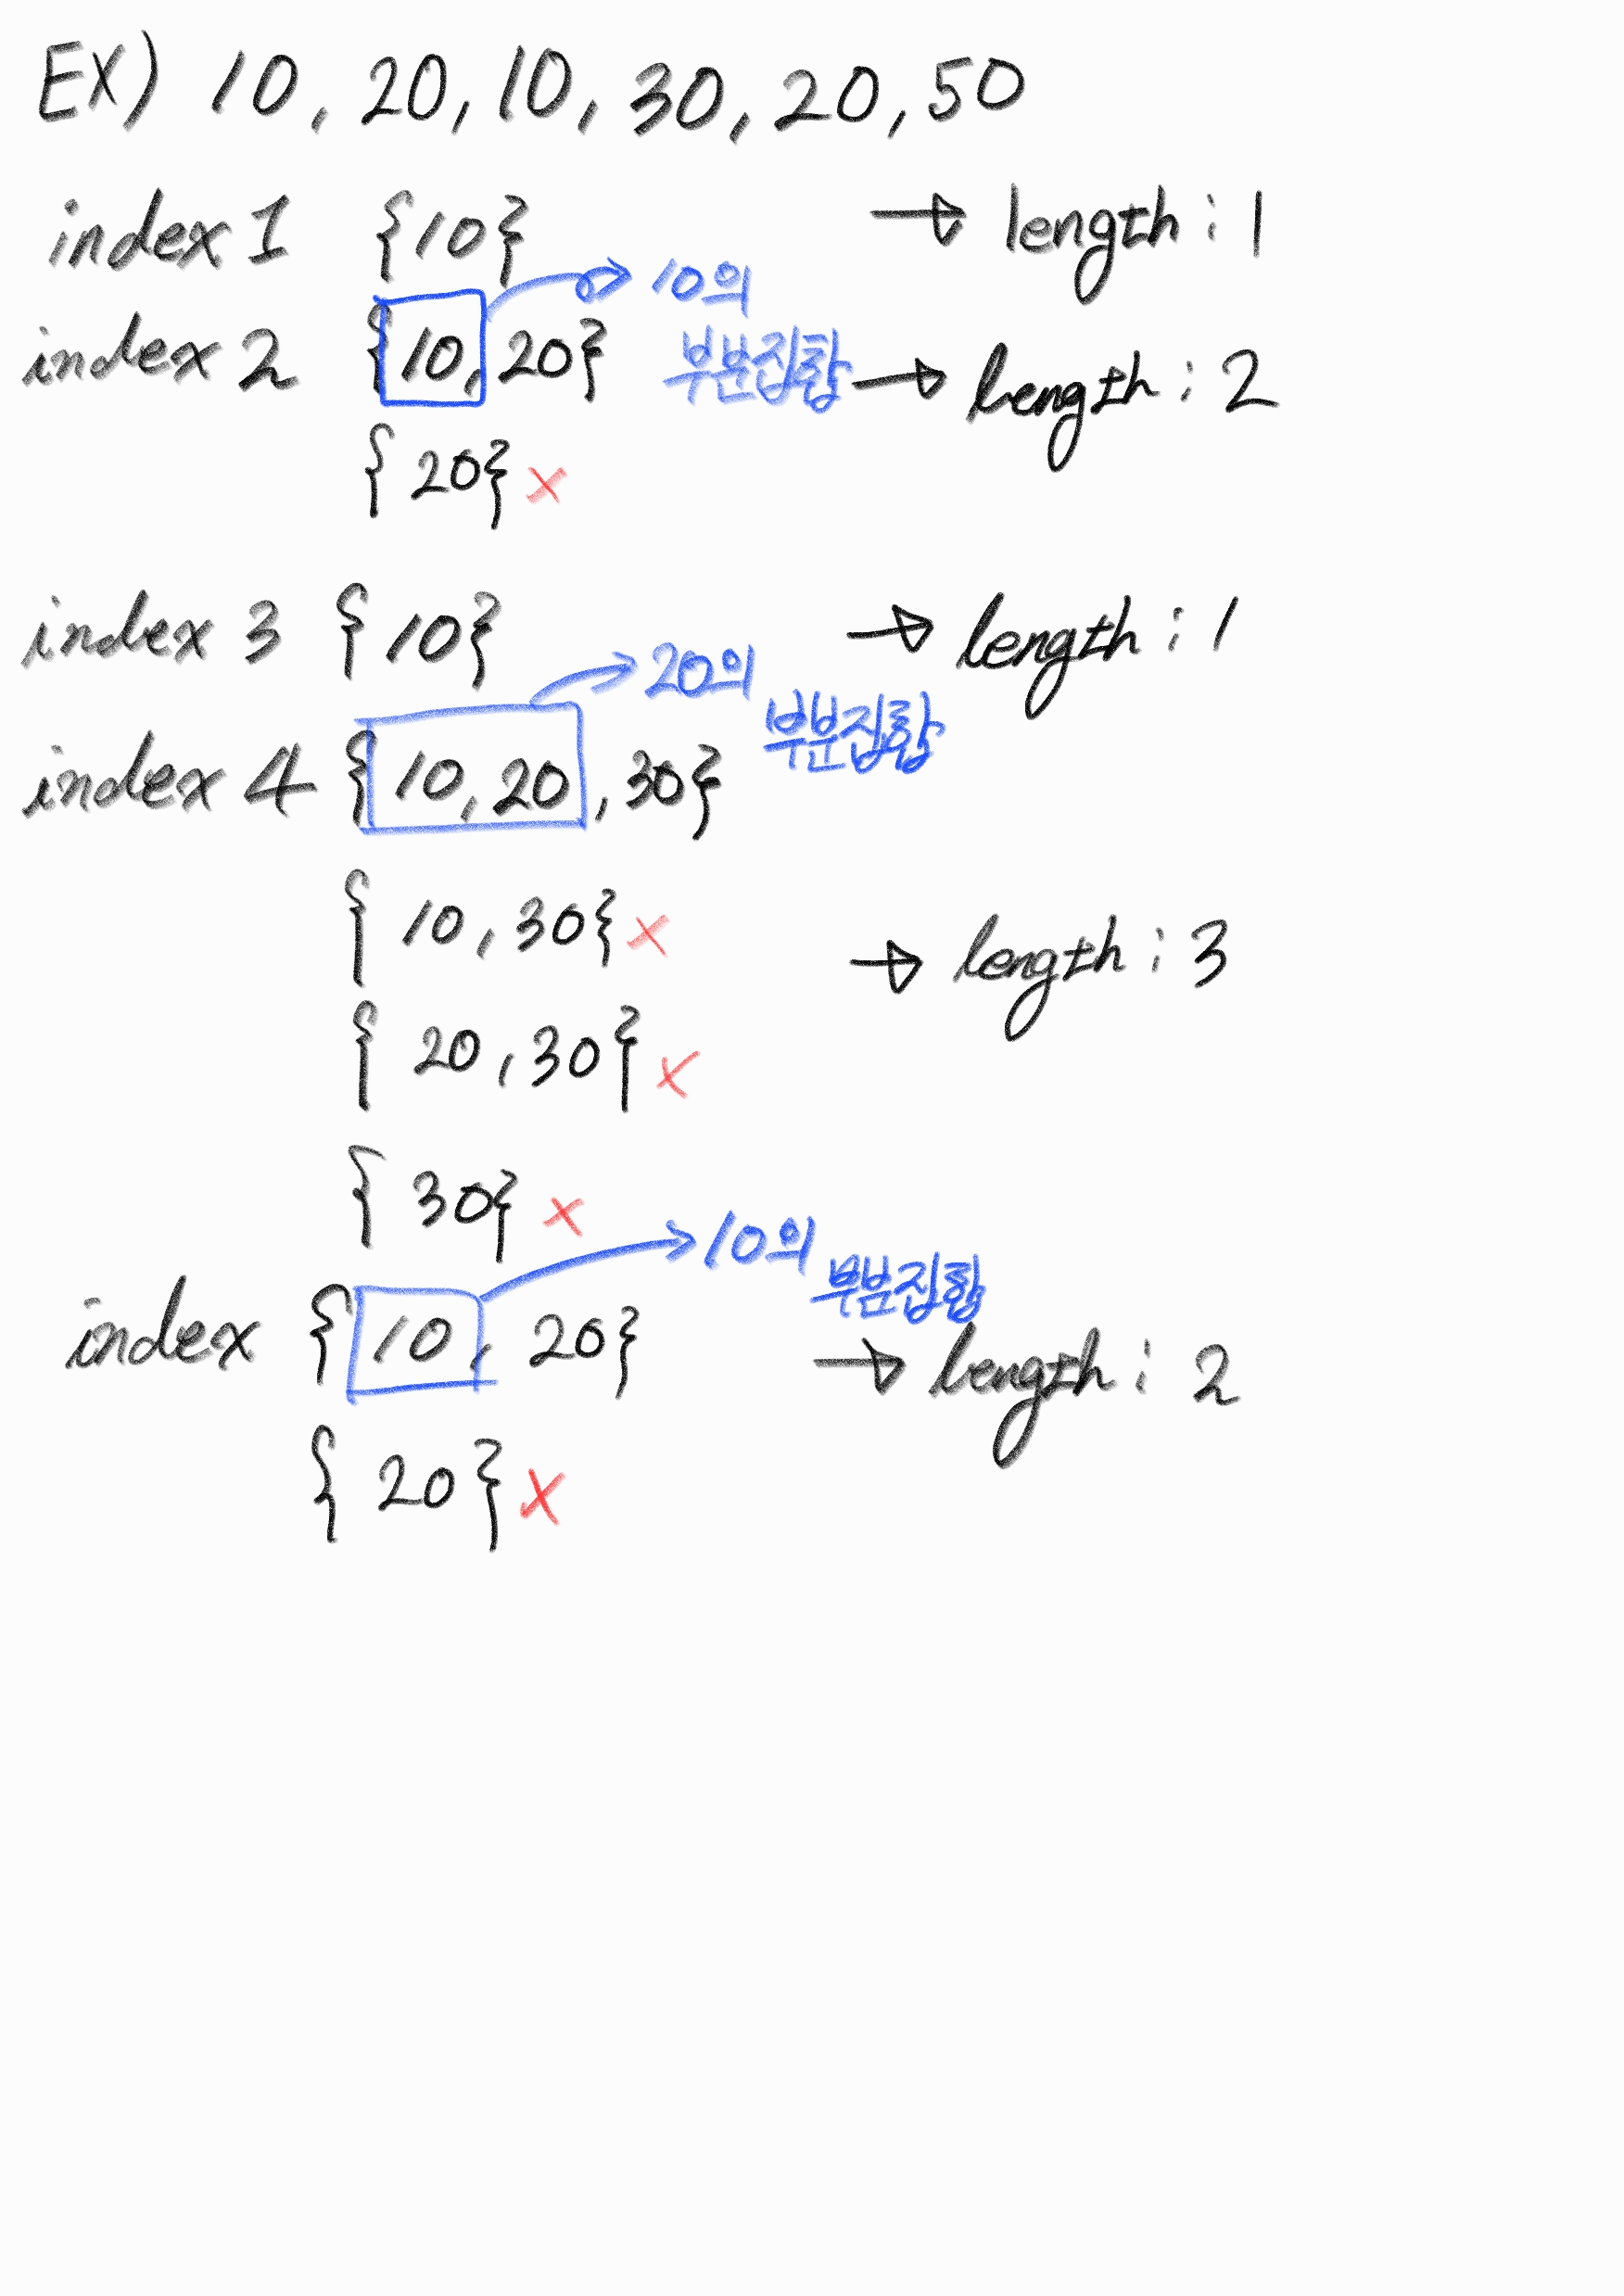 EX) 10, 20, 10, 30, 20, 50
index 1 {10} → length : 1
10의
index 2 {10, 20} 부분집합 → length : 2
{20} x
index 3 {10} → length : 1
20의
부분집합
index 4 {10, 20, 30}
{10, 30} x → length : 3
{20, 30} x
{30} x
10의
부분집합
index {10, 20} → length : 2
{20} x